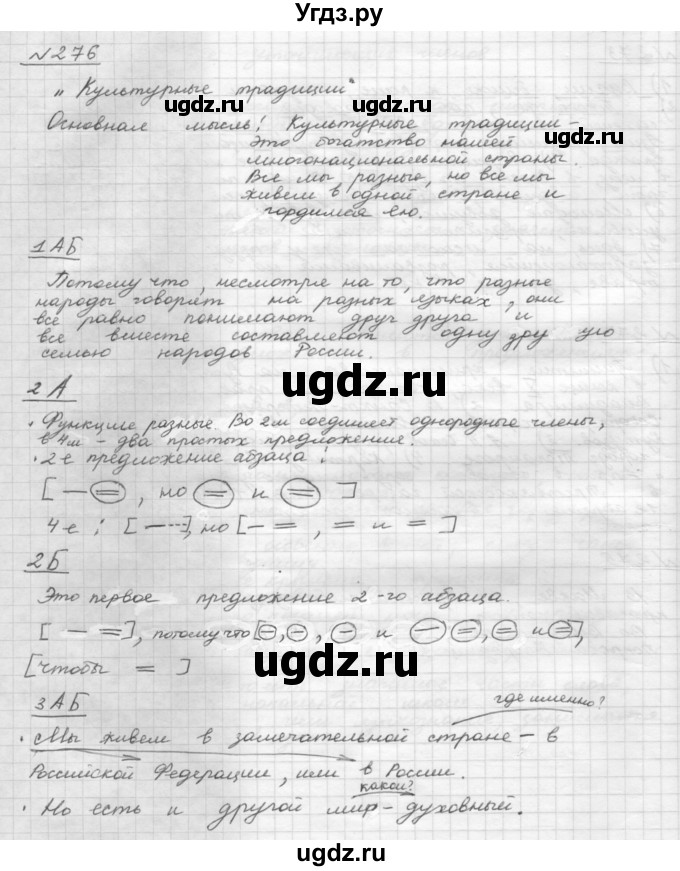 Угдз.ру
№276
„Культурные традиции"
Основная мысль: Культурные традиции –
это богатство нашей
многонациональной страны.
Все мы разные, но все мы
живем в одной стране и
гордимся ею.
1 АБ
Потому что, несмотря на то, что разные
народы говорят на разных языках, они
все равно понимают друг друга и
все вместе составляют одну
семью народов России.
2 А
· Функции разные. Во 2м соединяет однородные члены,
в 4м – два простых предложение.
· 2-е предложение абзаца:
[ — = , но = и = ]
4-е: [ — --- ], но [ — = , = и = ]
2Б
Это первое предложение 2-го абзаца.
[ — = ], потому что [ —, —, — и — =, = и = ],
[чтобы = ]
3 АБ
где именно?
· Мы живем в замечательной стране – в
Российской Федерации, или в России.
какой?
· Но есть и другой мир – духовный.
ugdz.ru
ugdz.ru
ugdz.ru
ugdz.ru
ugdz.ru
ugdz.ru
ugdz.ru
ugdz.ru
ugdz.ru